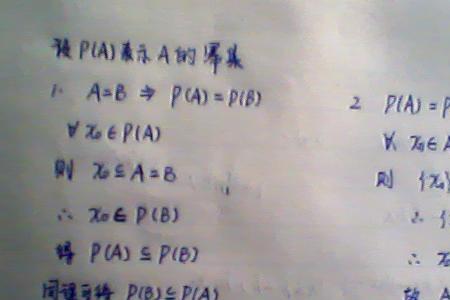 设P(A)表示A的幂集
1. A=B ⇒ P(A)=P(B)
∀ x₀∈P(A)
则 x₀⊆A=B
∴ x₀∈P(B)
得 P(A)⊆P(B)
同理可得 P(B)⊆P(A)
2 P(A)=P
∀ x₀∈A
则 {x₀}
∴ {
∴ x₀
故 A